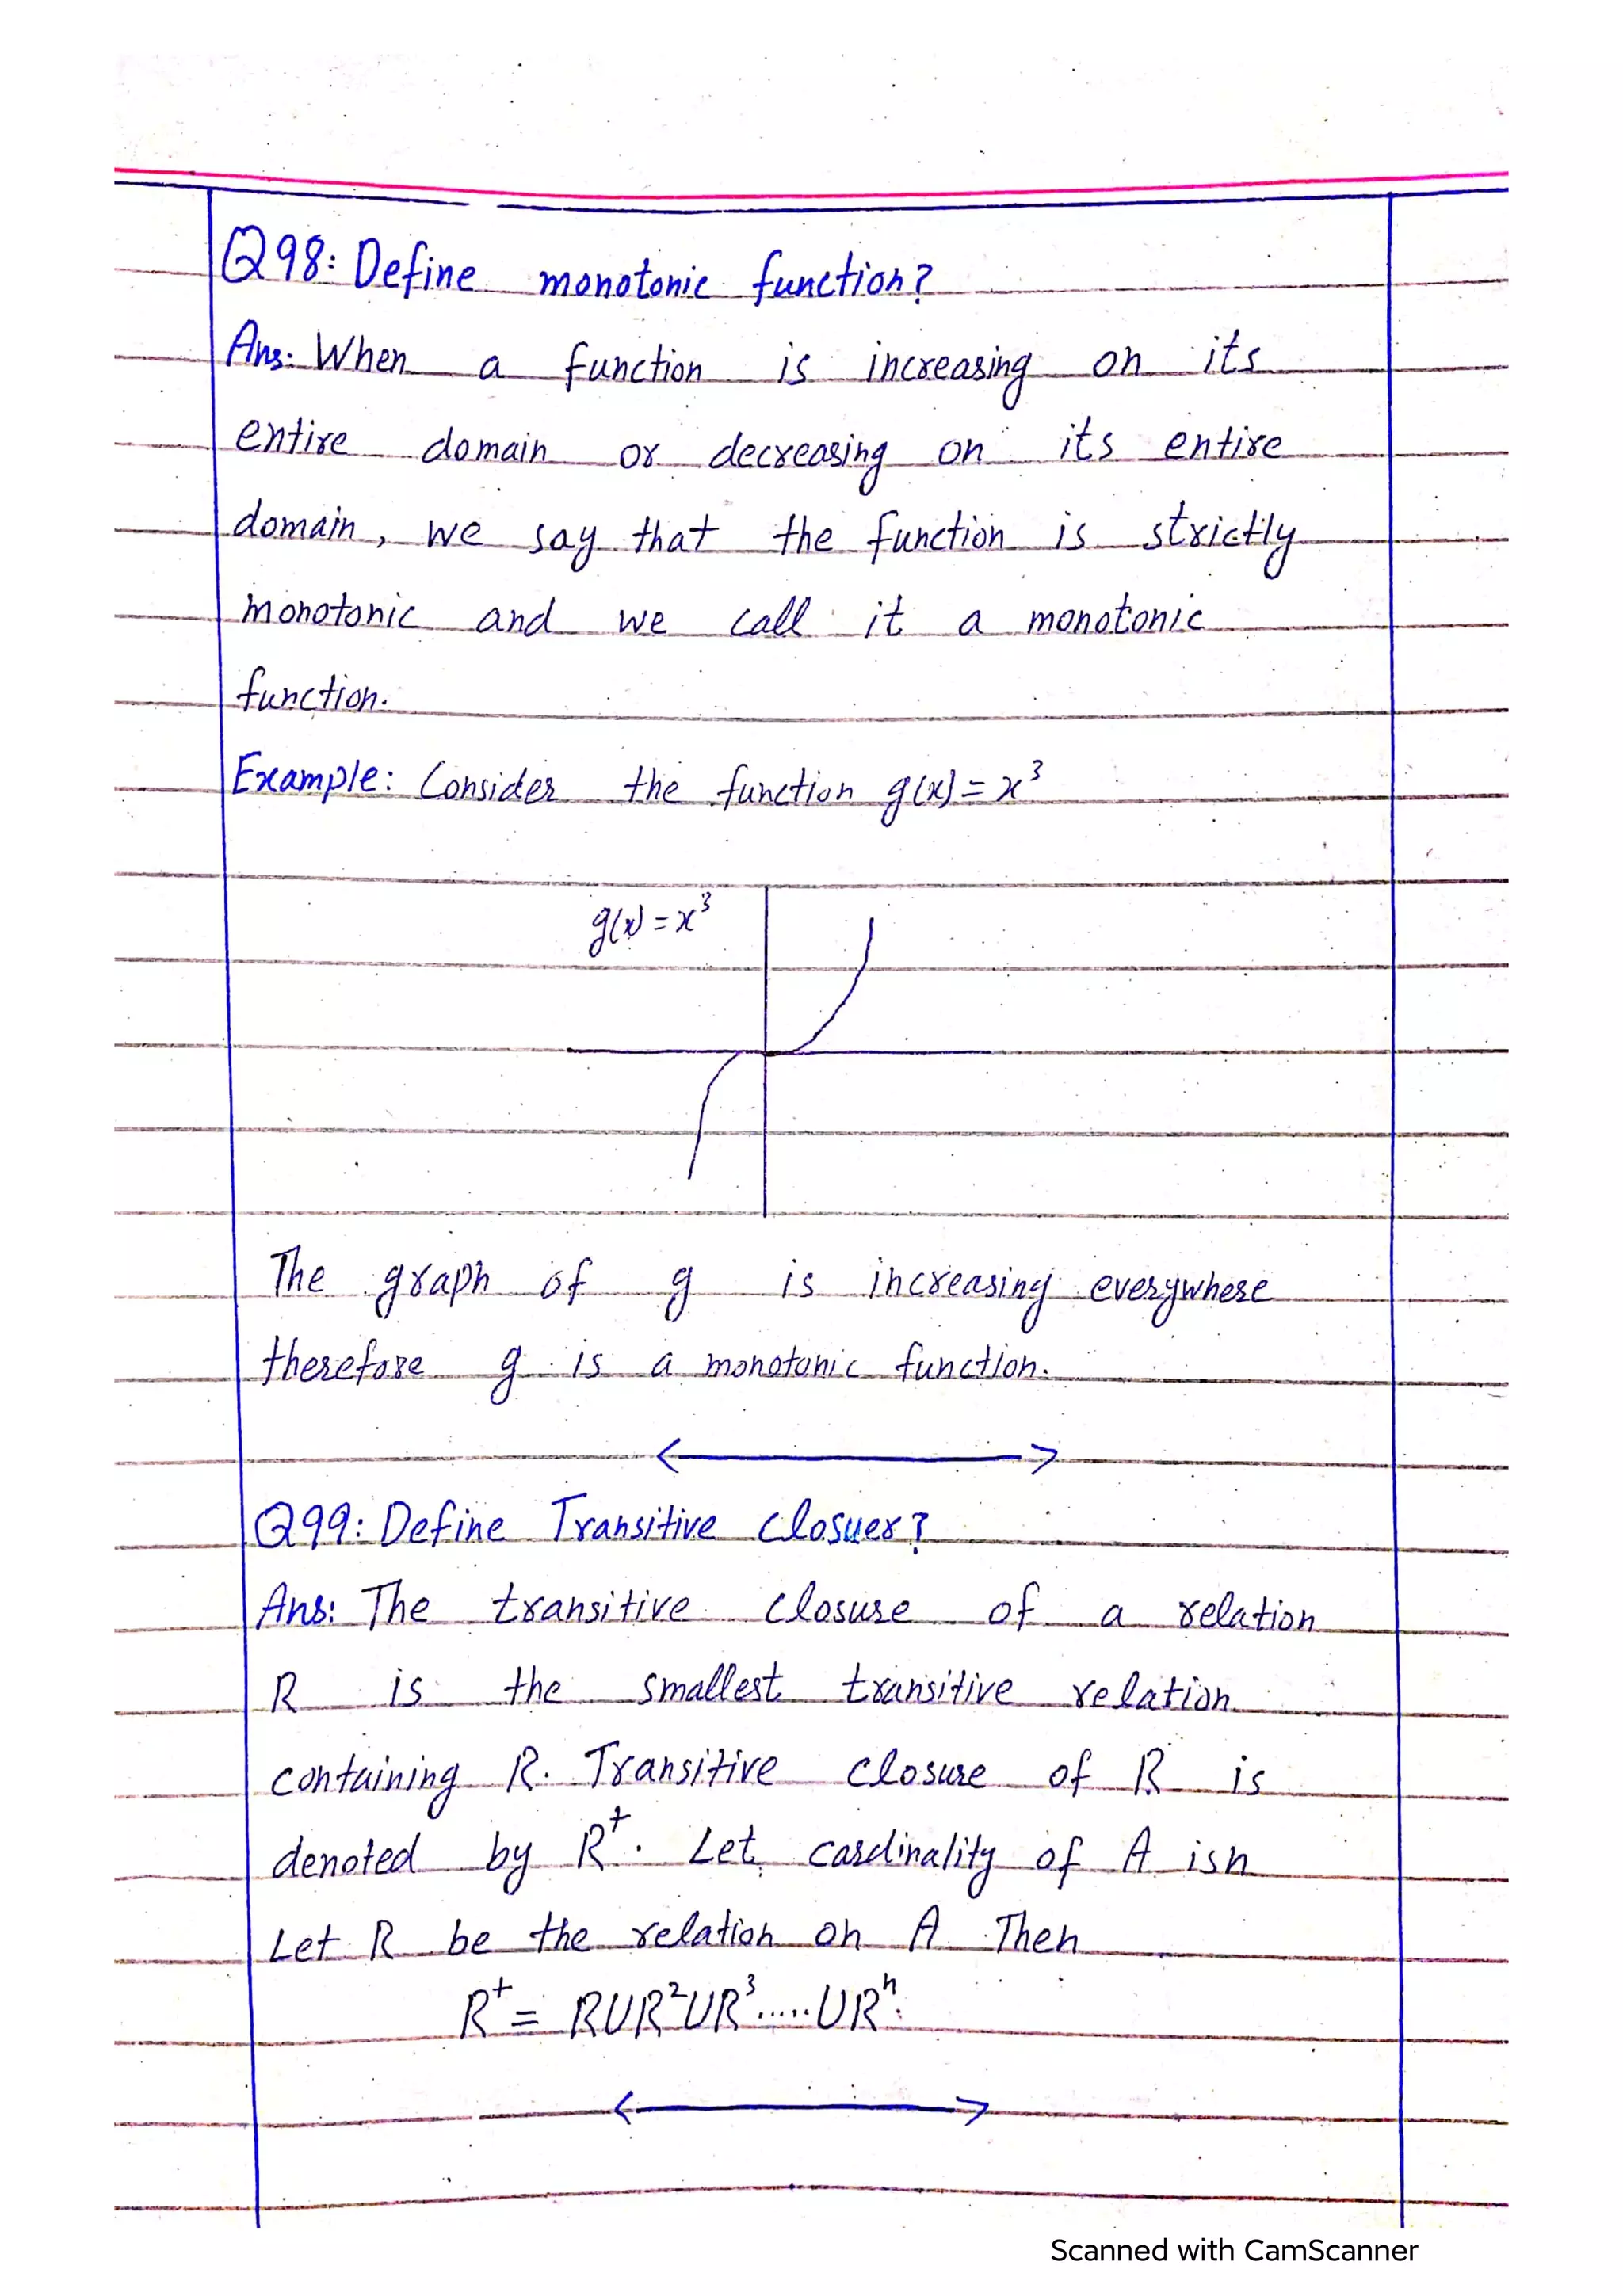 Q98: Define monotonic function?
Ans: When a function is increasing on its
entire domain or decreasing on its entire
domain, we say that the function is strictly
monotonic and we call it a monotonic
function.
Example: Consider the function g(x) = x³
g(x) = x³
The graph of g is increasing everywhere
therefore g is a monotonic function.
Q99: Define Transitive Closuer?
Ans: The transitive closure of a relation
R is the smallest transitive relation
containing R. Transitive closure of R is
denoted by R⁺. Let cardinality of A is n
Let R be the relation on A Then
R⁺ = RUR²UR³.....URⁿ.
Scanned with CamScanner